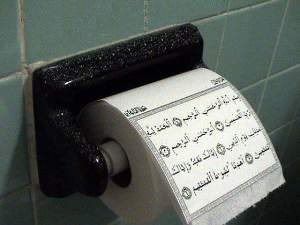 الله الرحمن الرحيم الحمد لله
رب العلمين الرحمن الرحيم
ملك يوم الدين إياك نعبد وإياك
نستعين اهدنا الصراط المستقيم